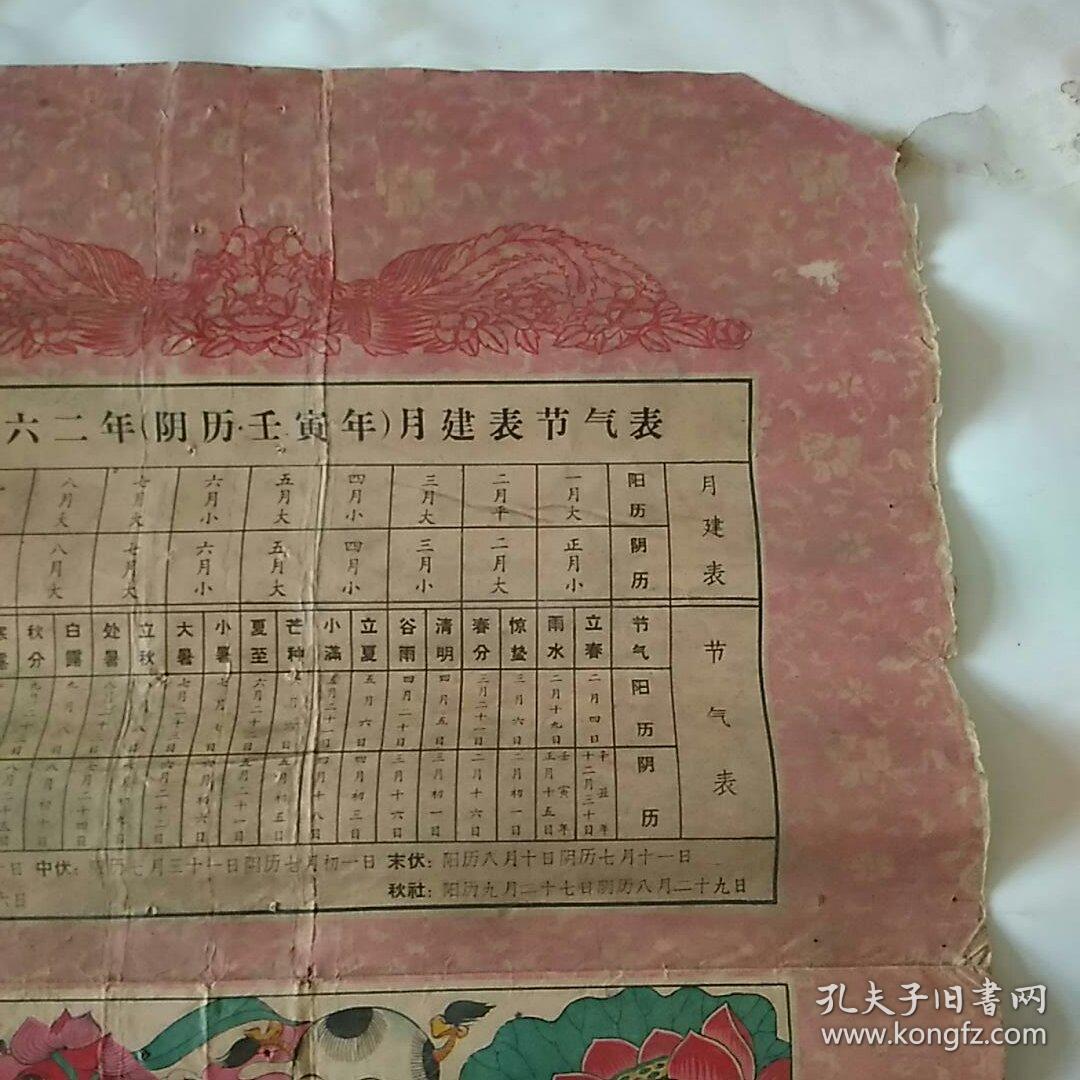 六二年(阴历·壬寅年)月建表节气表
八月大 七月大 六月小 五月大 四月小 三月大 二月平 一月大 阳历 月建表
八月大 七月大 六月小 五月大 四月小 三月小 二月大 正月小 阴历
秋分 白露 处暑 立秋 大暑 小暑 夏至 芒种 小满 立夏 谷雨 清明 春分 惊蛰 雨水 立春 节气 节气表
五月六日 四月二十日 四月五日 三月二十一日 三月六日 二月十九日 二月四日 阳历
四月十八日 四月初三日 三月十六日 三月初一日 二月十六日 二月初一日 壬寅年正月十五日 辛丑年十二月三十日 阴历
日 中伏：阳历七月三十一日阴历七月初一日 末伏：阳历八月十日阴历七月十一日
六日 秋社：阳历九月二十七日阴历八月二十九日
孔夫子旧書网
www.kongfz.com